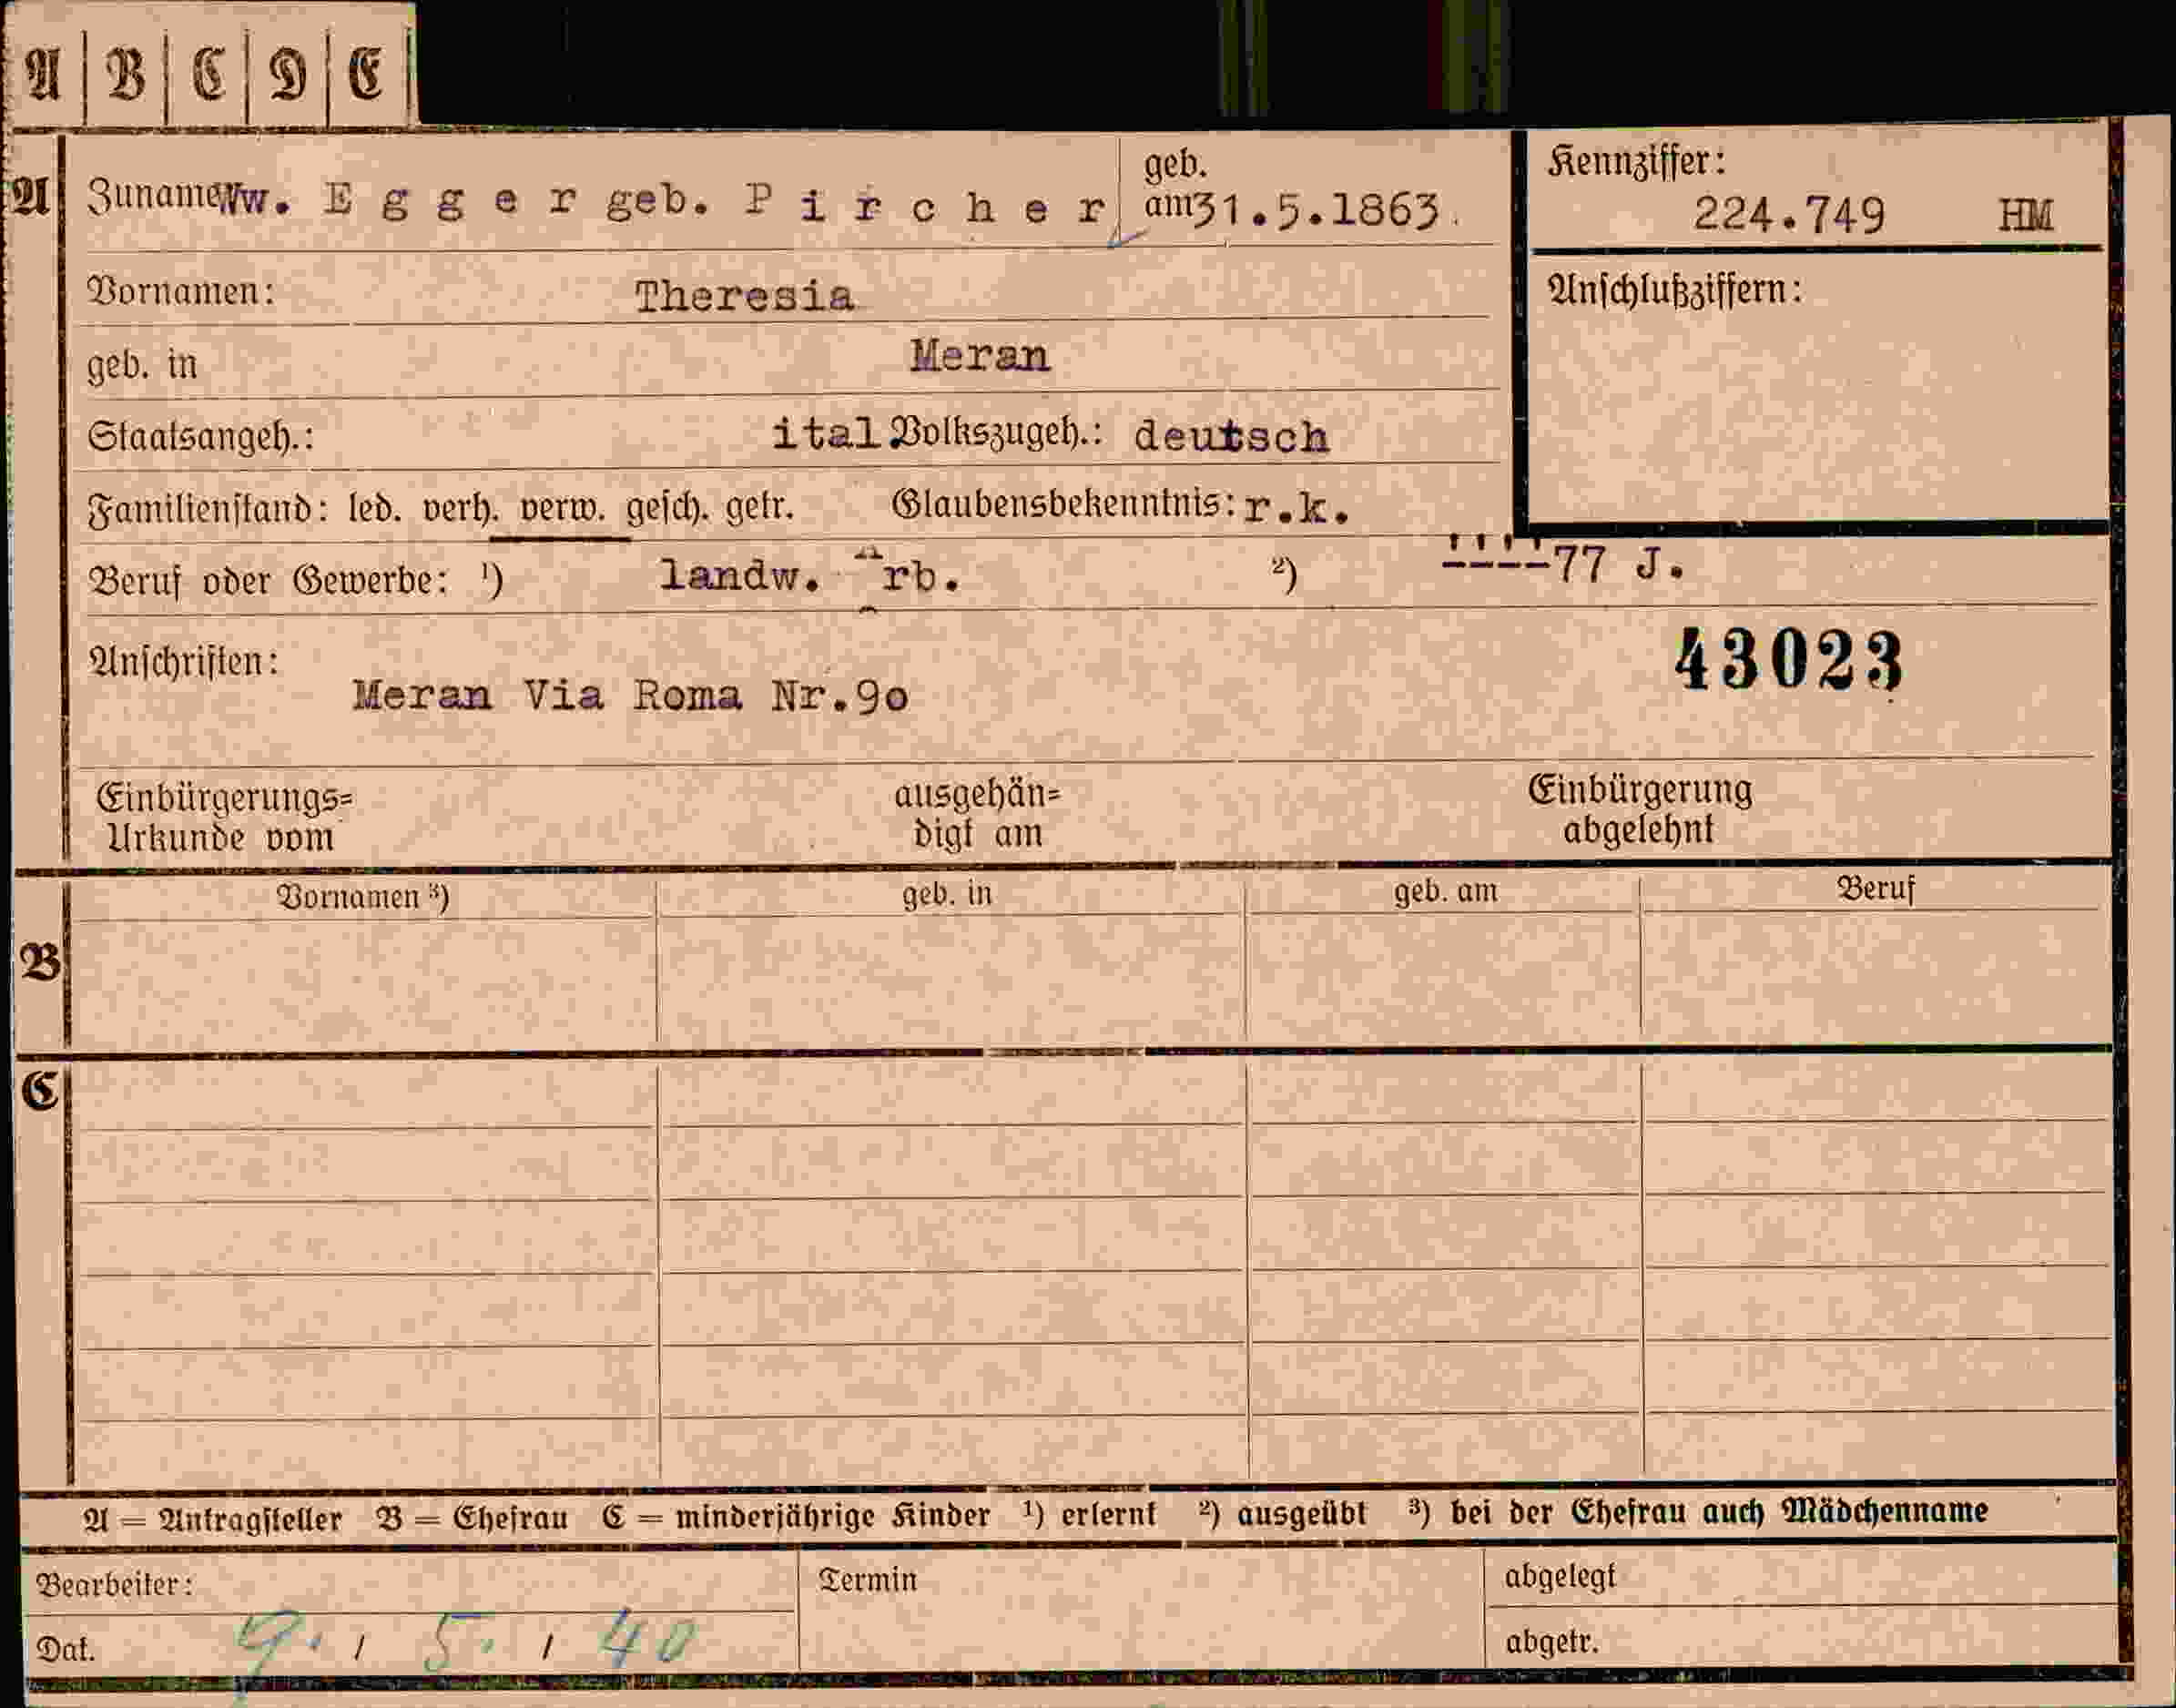 A B C D E
A Zuname Ww. E g g e r geb. P i r c h e r geb. am 31.5.1863.
Kennziffer: 224.749 HM
Vornamen: Theresia
Anschlußziffern:
geb. in Meran
Staatsangeh.: ital Volkszugeh.: deutsch
Familienstand: led. verh. verw. gesch. getr. Glaubensbekenntnis: r.k.
Beruf oder Gewerbe: ¹) landw. rb. ²) ----77 J.
Anschriften: 43023
Meran Via Roma Nr.9o
Einbürgerungs= ausgehän= Einbürgerung
Urkunde vom digt am abgelehnt
Vornamen ³) geb. in geb. am Beruf
B
C
A = Antragsteller B = Ehefrau C = minderjährige Kinder ¹) erlernt ²) ausgeübt ³) bei der Ehefrau auch Mädchenname
Bearbeiter: Termin abgelegt
Dat. 9. / 5. / 40 abgetr.